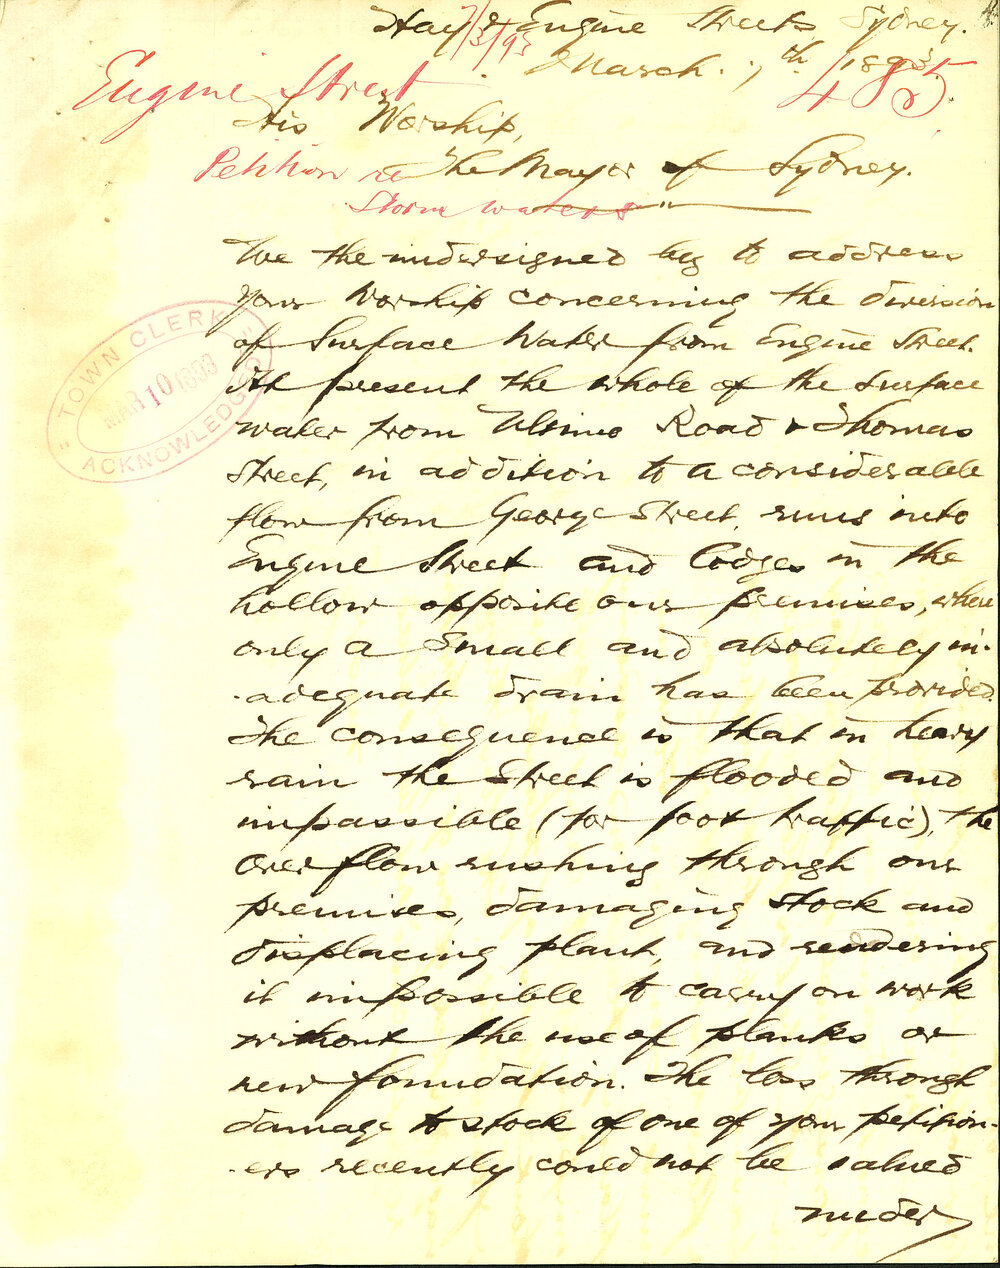 Hay & Engine Streets Sydney.
7/3/93
March. 7th 1893
Engine Street
485
His Worship,
Petition re
The Mayor of Sydney.
Storm waters
We the undersigned beg to address
Your Worship concerning the diversion
of Surface Water from Engine Street.
At present the whole of the surface
water from Ultimo Road & Thomas
Street, in addition to a considerable
flow from George Street, runs into
Engine Street and lodges in the
hollow opposite our premises, where
only a small and absolutely in-
-adequate drain has been provided.
The consequence is that in heavy
rain the Street is flooded and
impassible (for foot traffic), the
overflow rushing through our
premises, damaging stock and
displacing plant, and rendering
it impossible to carry on work
without the use of planks or
new foundation. The loss through
damage to stock of one of your petition-
-ers recently could not be valued
under
"TOWN CLERK"
MAR 10 1893
ACKNOWLEDGED